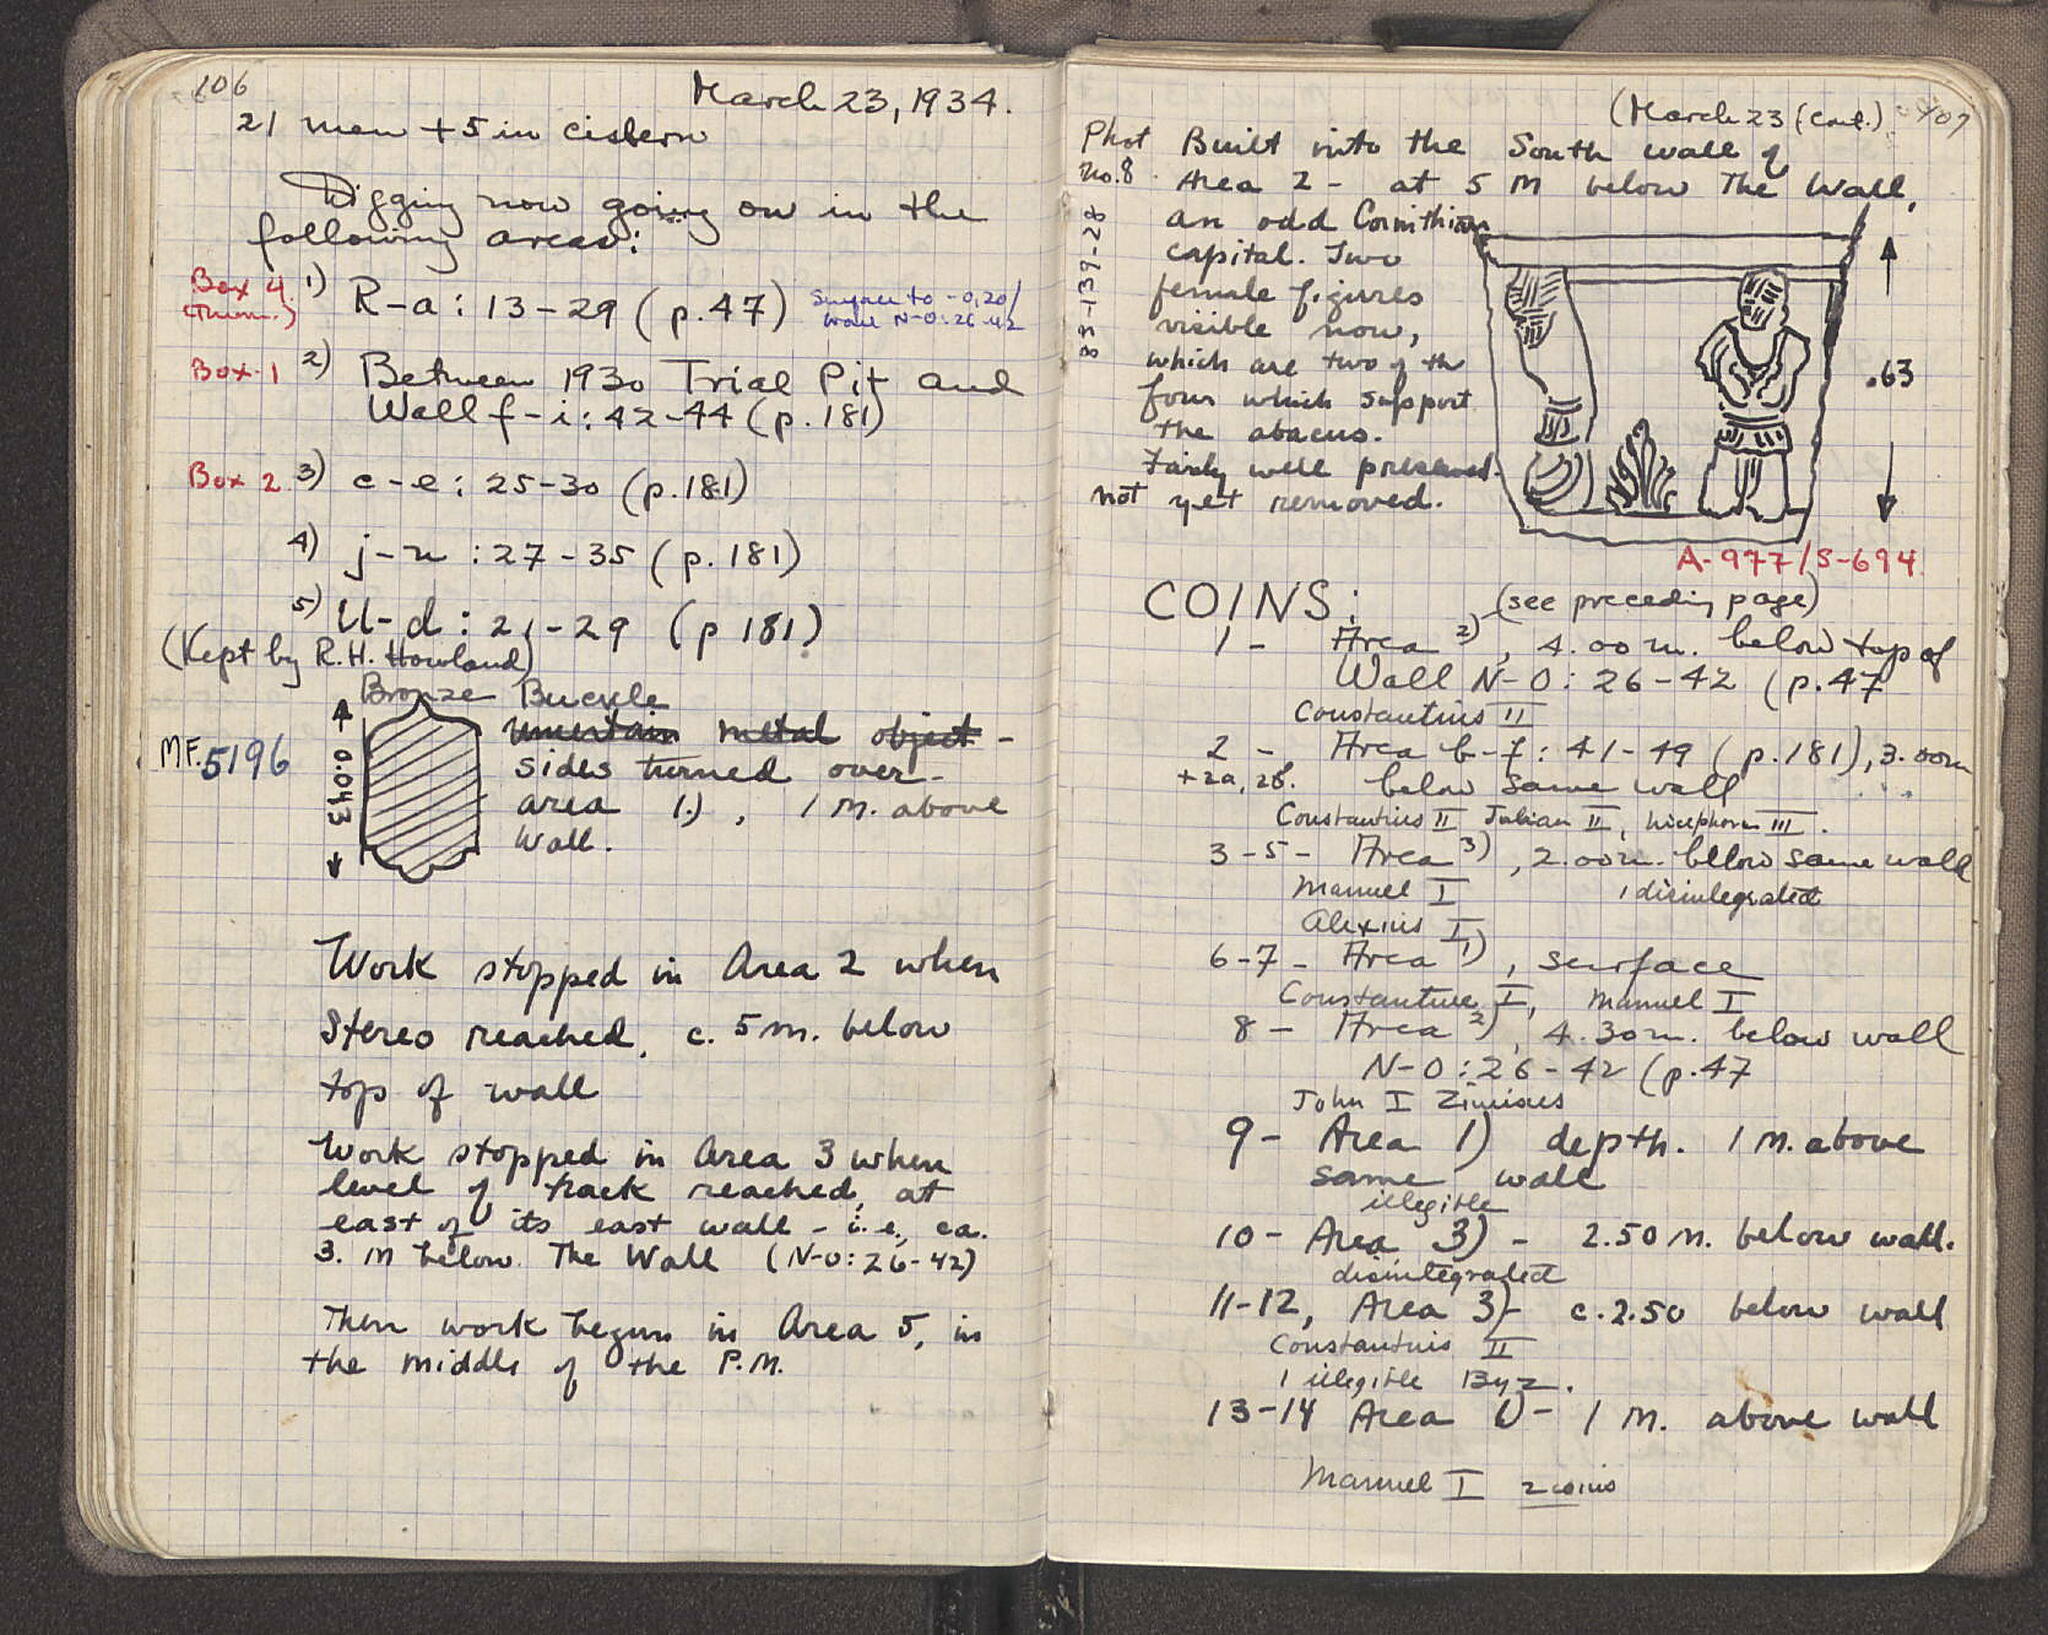 106
March 23, 1934.
21 men + 5 in cistern
Digging now going on in the
following areas:
Box 4
1) R-a: 13-29 (p.47)
Surface to -0,20/
wall N-O:26-42
Box 1
2) Between 1930 Trial Pit and
Wall f-i: 42-44 (p.181)
Box 2
3) c-e: 25-30 (p.181)
4) j-n: 27-35 (p.181)
5) U-d: 21-29 (p 181)
(Kept by R.H. Howland)
Bronze Buckle
uncertain metal object -
MF. 5196
0.043
sides turned over -
area 1.), 1 M. above
Wall.
Work stopped in Area 2 when
Stereo reached, c. 5 m. below
top of wall
Work stopped in Area 3 when
level of track reached, at
east of its east wall - i.e., ca.
3. M below The Wall (N-O:26-42)
Then work begun in Area 5, in
the middle of the P.M.
(March 23 (Cont.) 107
Phot
No.8
33-139-28
Built into the South wall of
Area 2 - at 5 M below The Wall,
an odd Corinthian
capital. Two
female figures
visible now,
which are two of th
four which support
the abacus.
Fairly well preserved.
not yet removed.
.63
A-977/S-694
COINS: (see preceding page)
1 - Area 2), 4.00 m. below top of
Wall N-O: 26-42 (p.47
Constantius II
2 - Area b-f: 41-49 (p.181), 3.00m
+2a, 2b. below same wall
Constantius II Julian II, Nicephorus III.
3-5- Area 3), 2.00m. below same wall
Manuel I 1 disintegrated
Alexius I
6-7- Area 1), surface
Constantine I, Manuel I
8 - Area 2), 4.30m. below wall
N-O:26-42 (p.47
John I Zimisces
9 - Area 1) depth. 1 M. above
same wall
illegible
10 - Area 3) - 2.50 M. below wall.
disintegrated
11-12, Area 3)- c.2.50 below wall
Constantius II
1 illegible Byz.
13-14 Area 1)- 1 M. above wall
Manuel I 2 coins